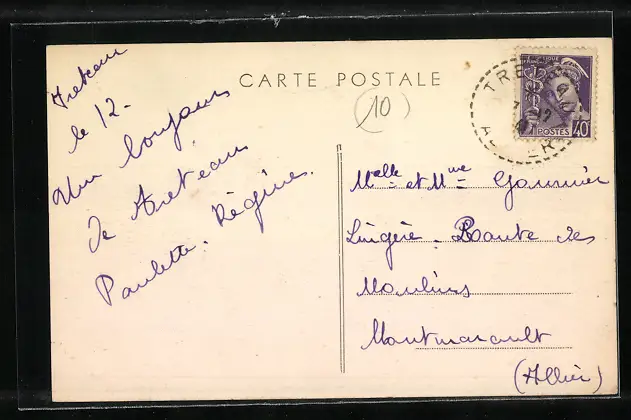 CARTE POSTALE
(10)
Treteau
le 12-
Un bonjour
de Treteau
Paulette. Régine.
TRETEAU
ALLIER
POSTES 40
Melle et Mme Gommier
Lingère. Route des
Moulins
Montmarault
(Allier)